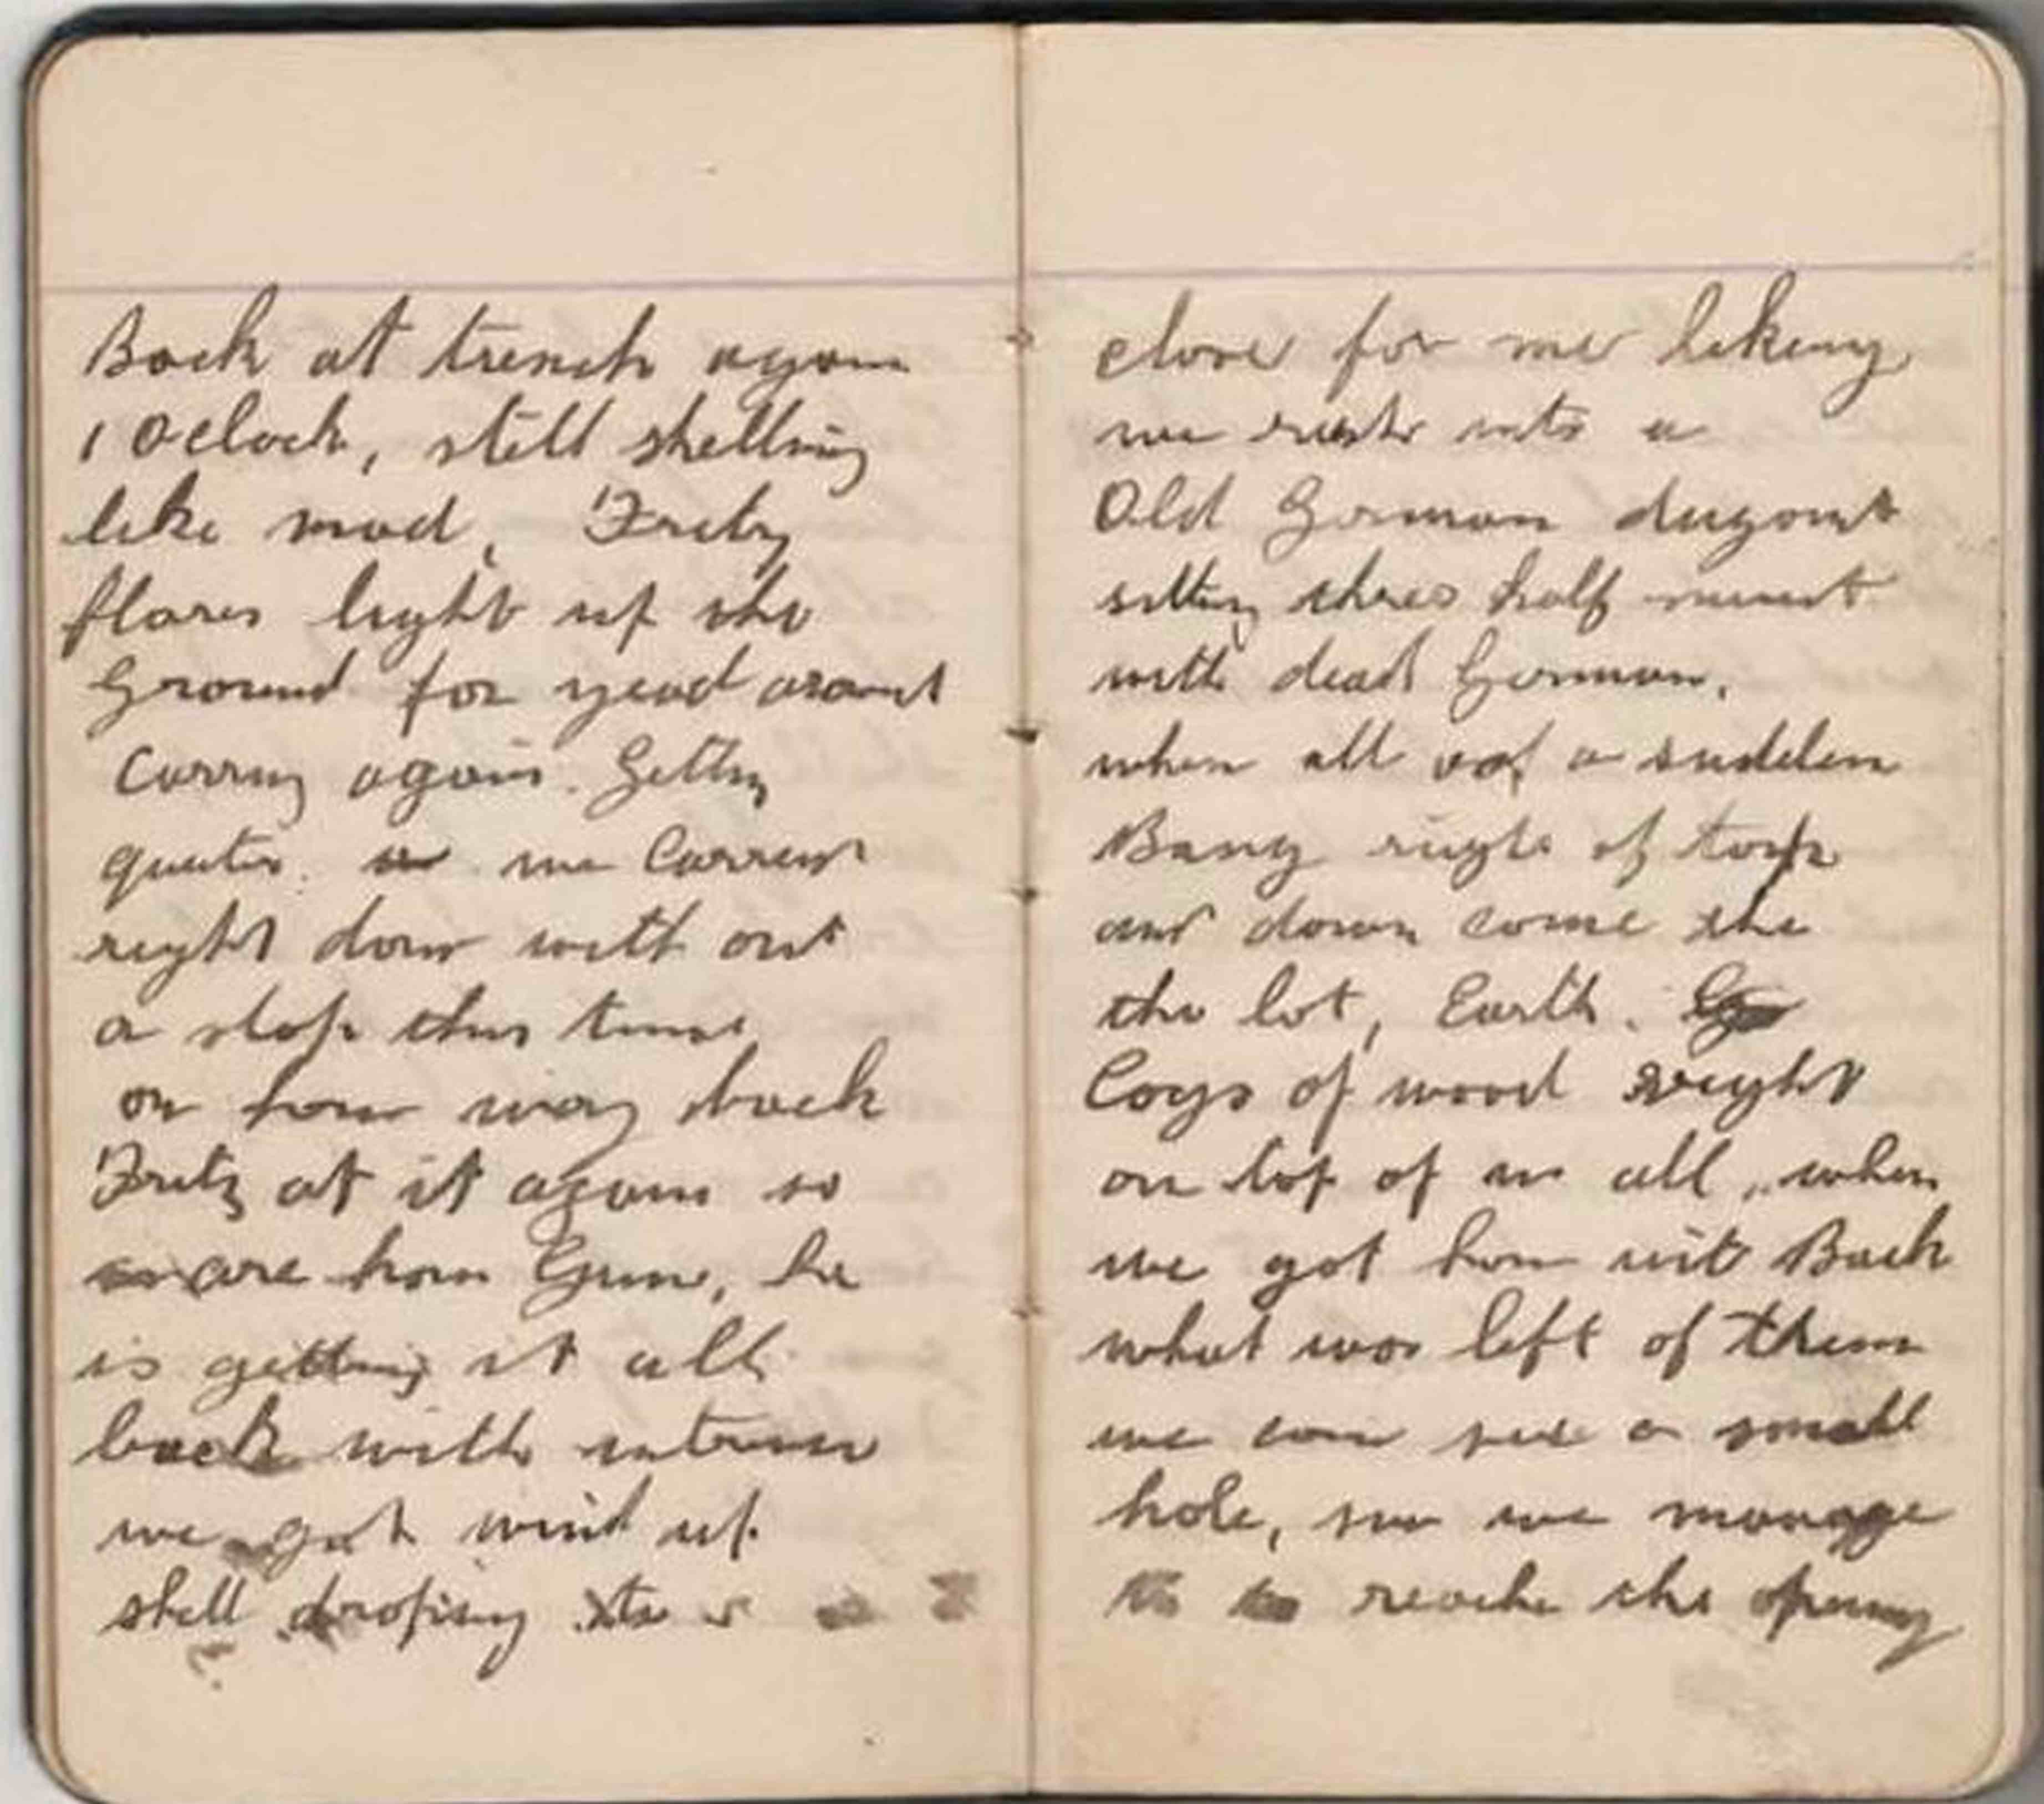 Back at trench again
1 Oclock, still shelling
like mad, Fritz
flares light up the
Ground for yead around
Carring again. Getting
quiter. we Carrien
right down with out
a stop this time
on how way back
Fritz at it again so
are how Guns, he
is getting it all
back with intrness
we got wind up
shell droping to
close for me likeing
we rush into a
Old German dugout
sitting there half minuet
with dead German,
when all of a sudden
Bang right of top
and down come the
the lot, Earth.
Logs of wood right
on top of us all, when
we got how wits Back
what was left of them
we can see a small
hole, so we manage
to reache the opening